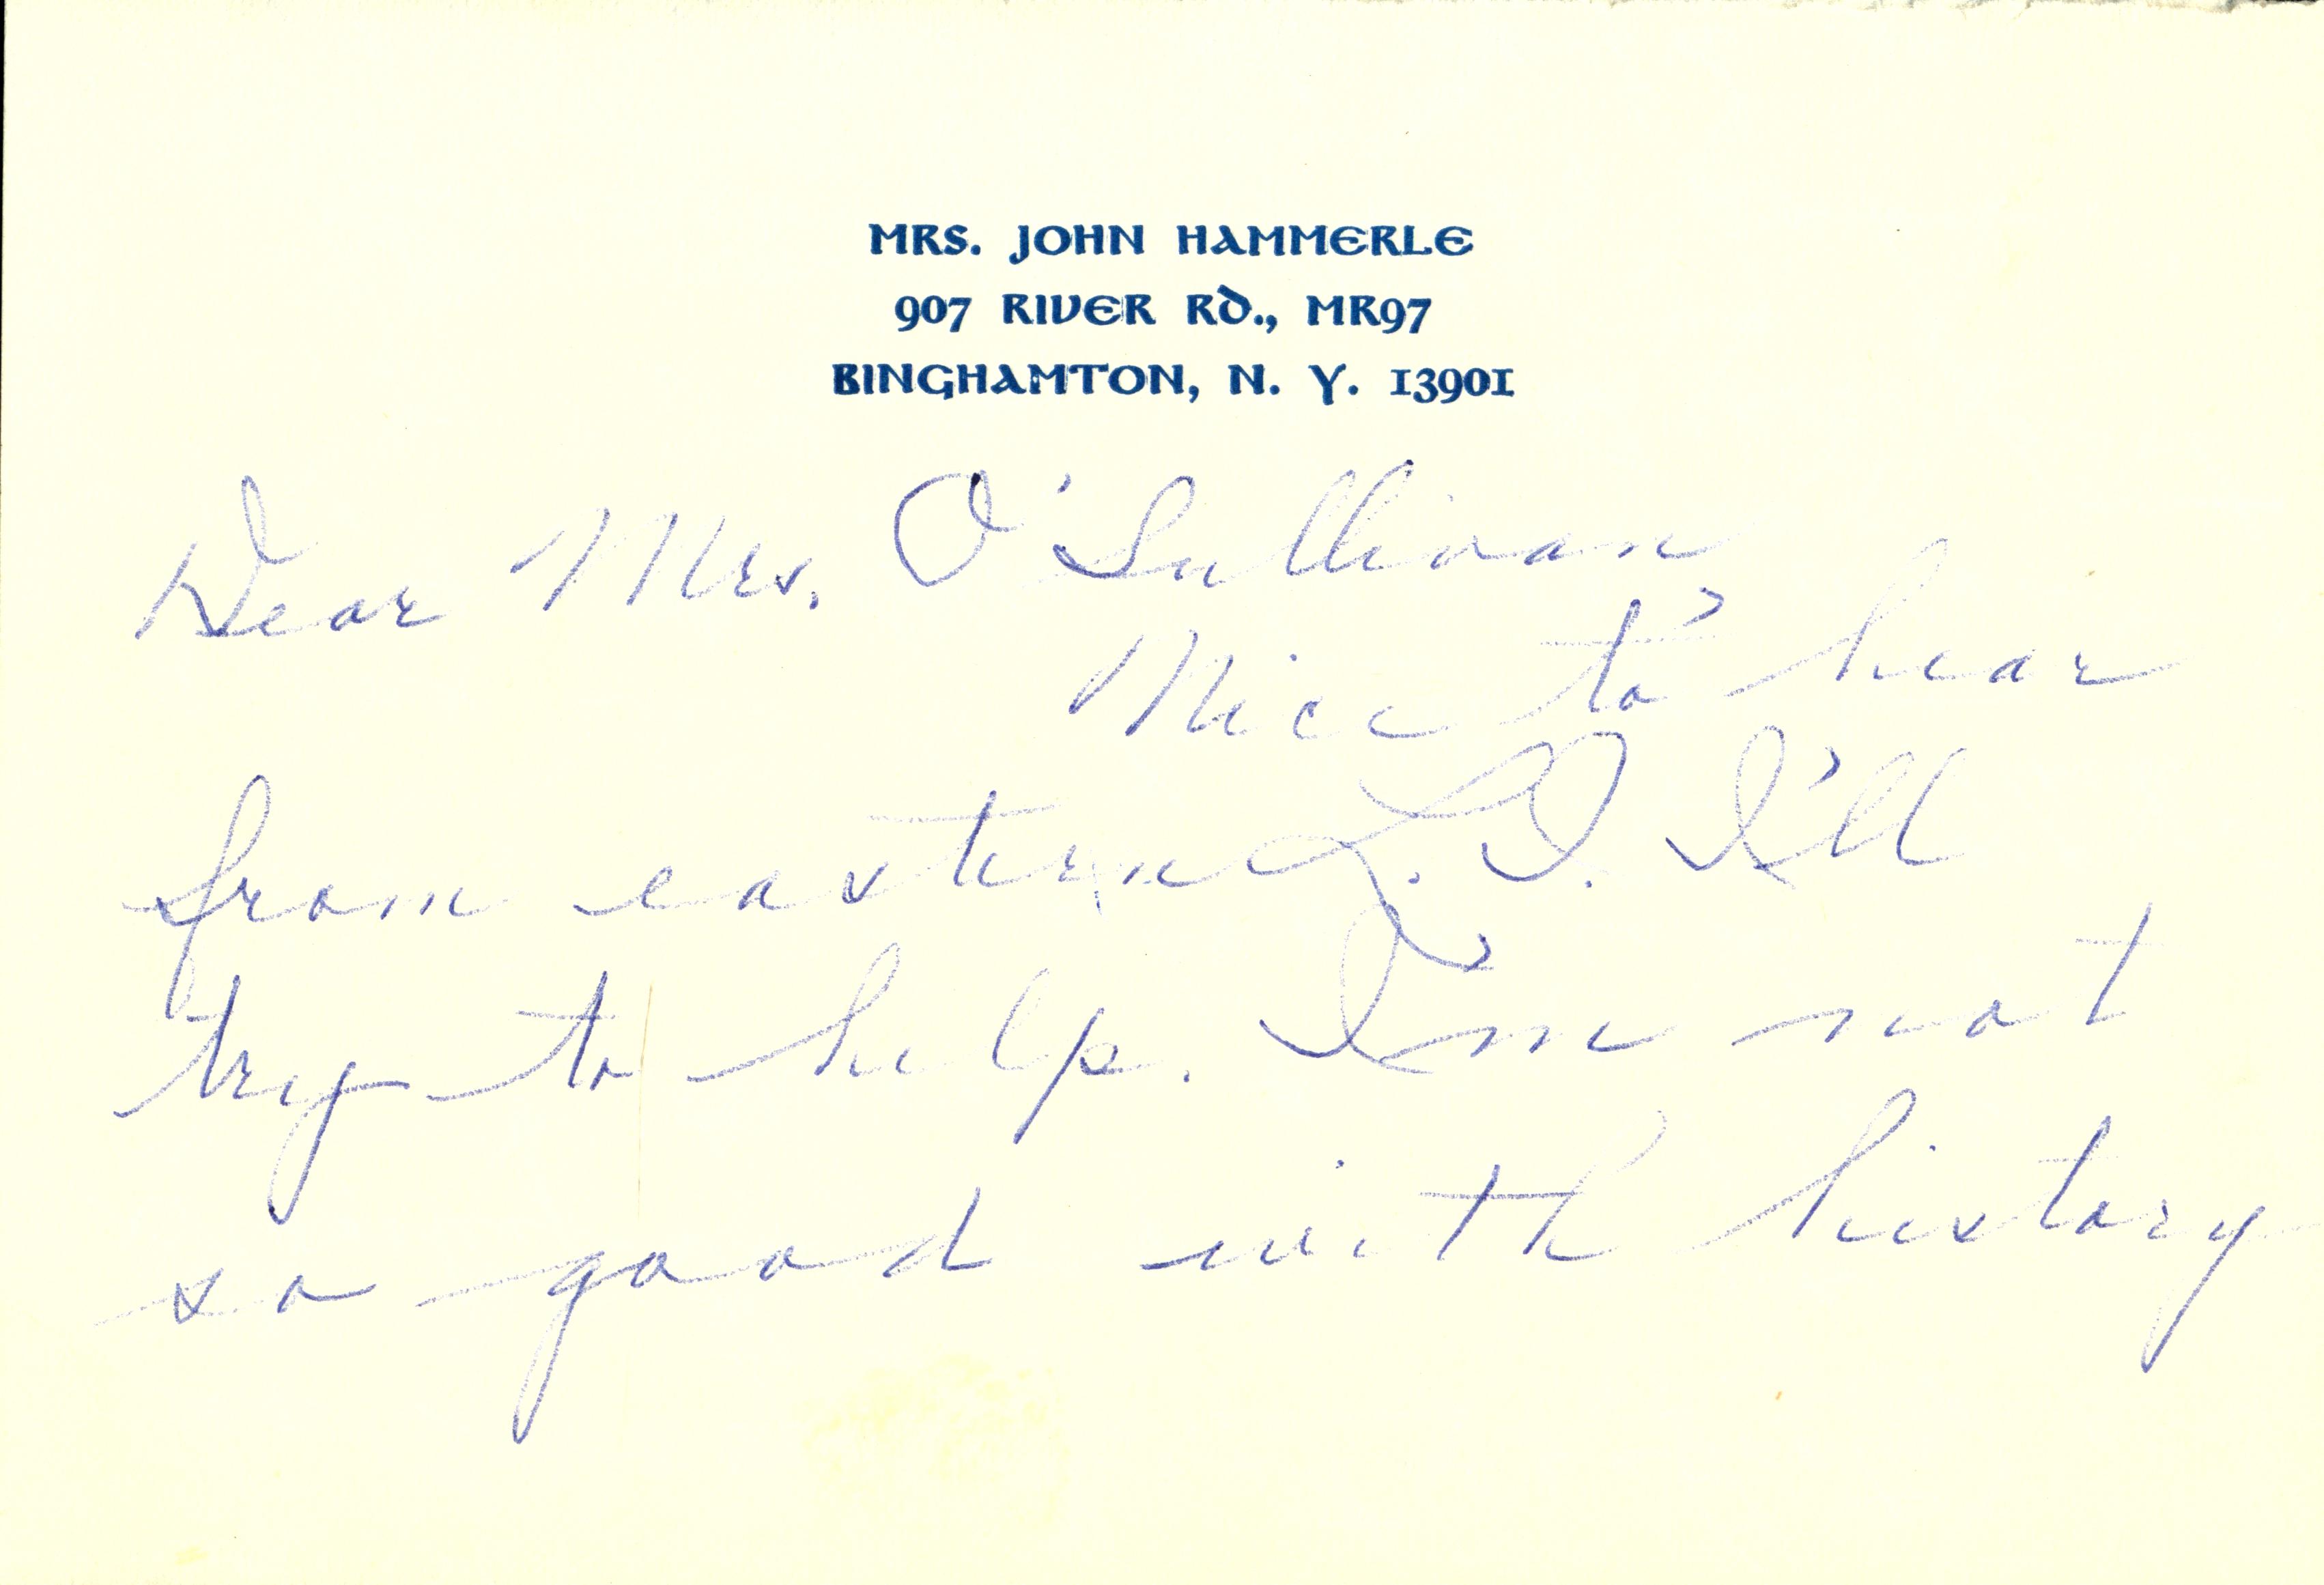 MRS. JOHN HAMMERLE
907 RIVER RD., MR97
BINGHAMTON, N. Y. 13901
Dear Mrs. O'Sullivan,
Nice to hear
from eastern L.I. I'll
try to help. I'm not
so good with history